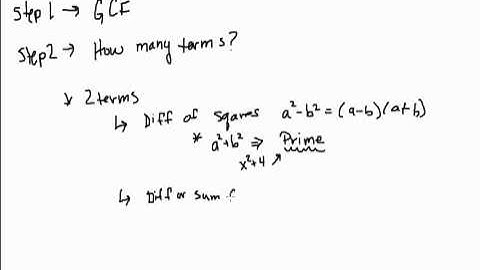 Step 1 → GCF
Step 2 → How many terms?
* 2 terms
↳ Diff of Sqares a²-b² = (a-b)(a+b)
* a²+b² ⇒ Prime
x²+4 ↗
↳ Diff or sum